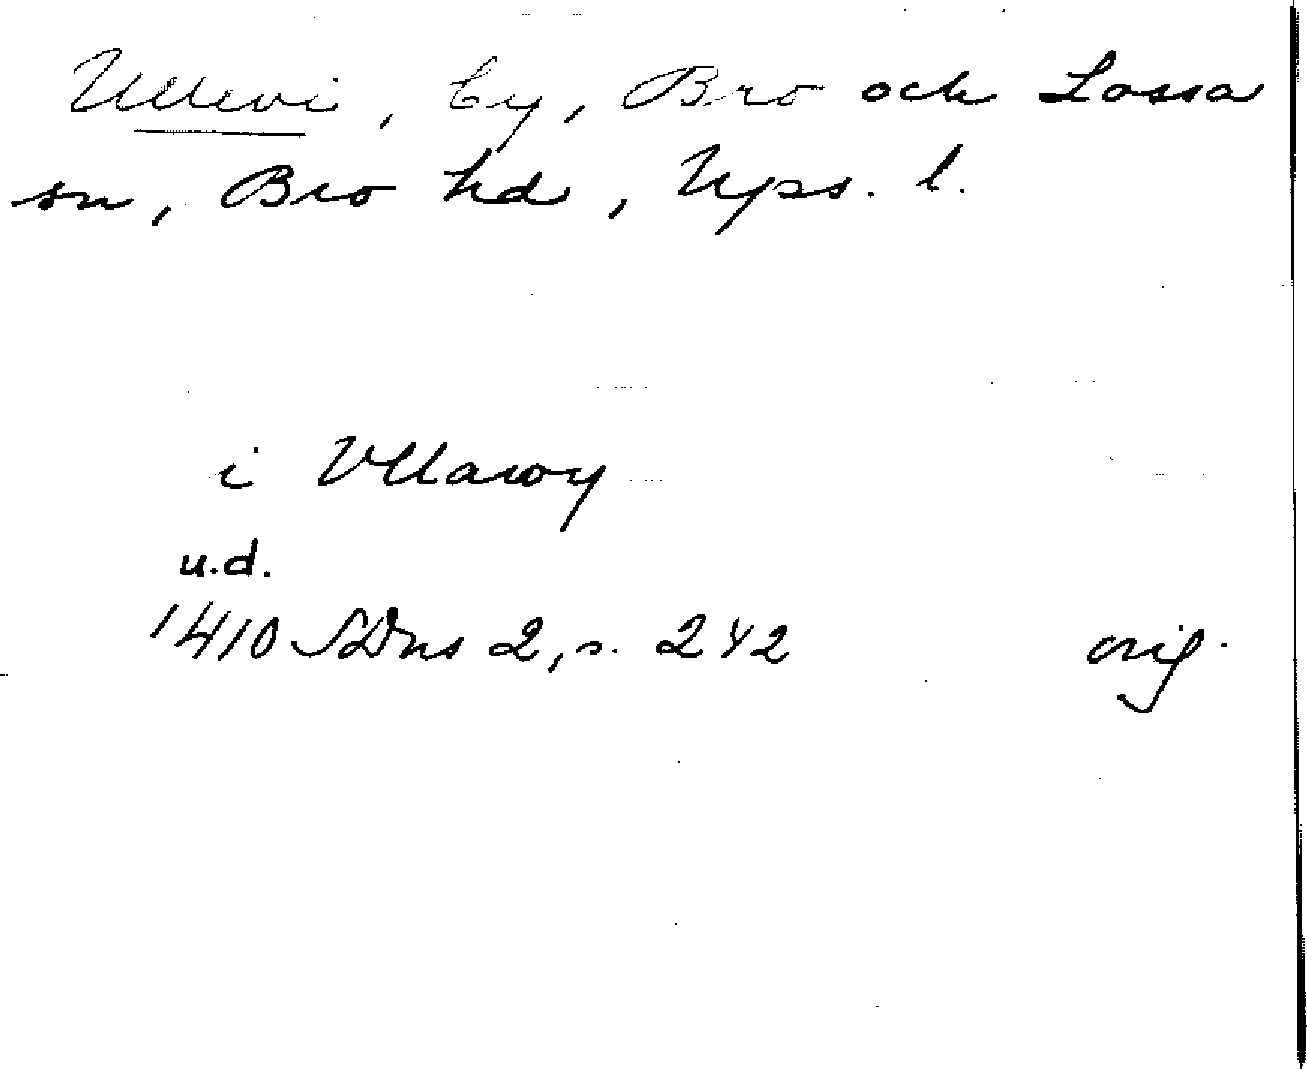 Ullevi, by, Bro och Lossa
sn, Bro hd, Ups. l.
i Vllawy
u.d.
1410 SDns 2, s. 242 orig.